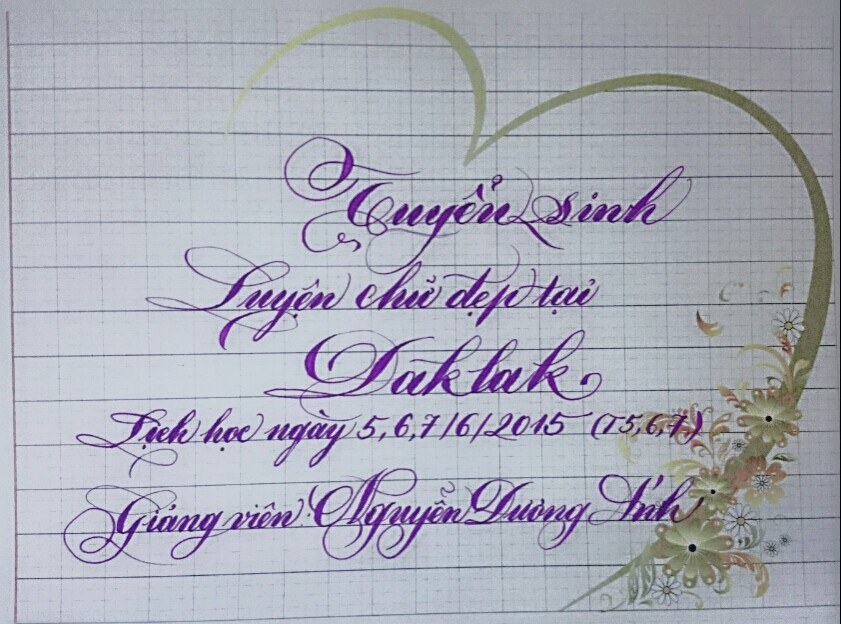 Tuyển sinh
Luyện chữ đẹp tại
Daklak
Lịch học ngày 5,6,7/6/2015 (T5,6,7)
Giảng viên: Nguyễn Dương Ánh